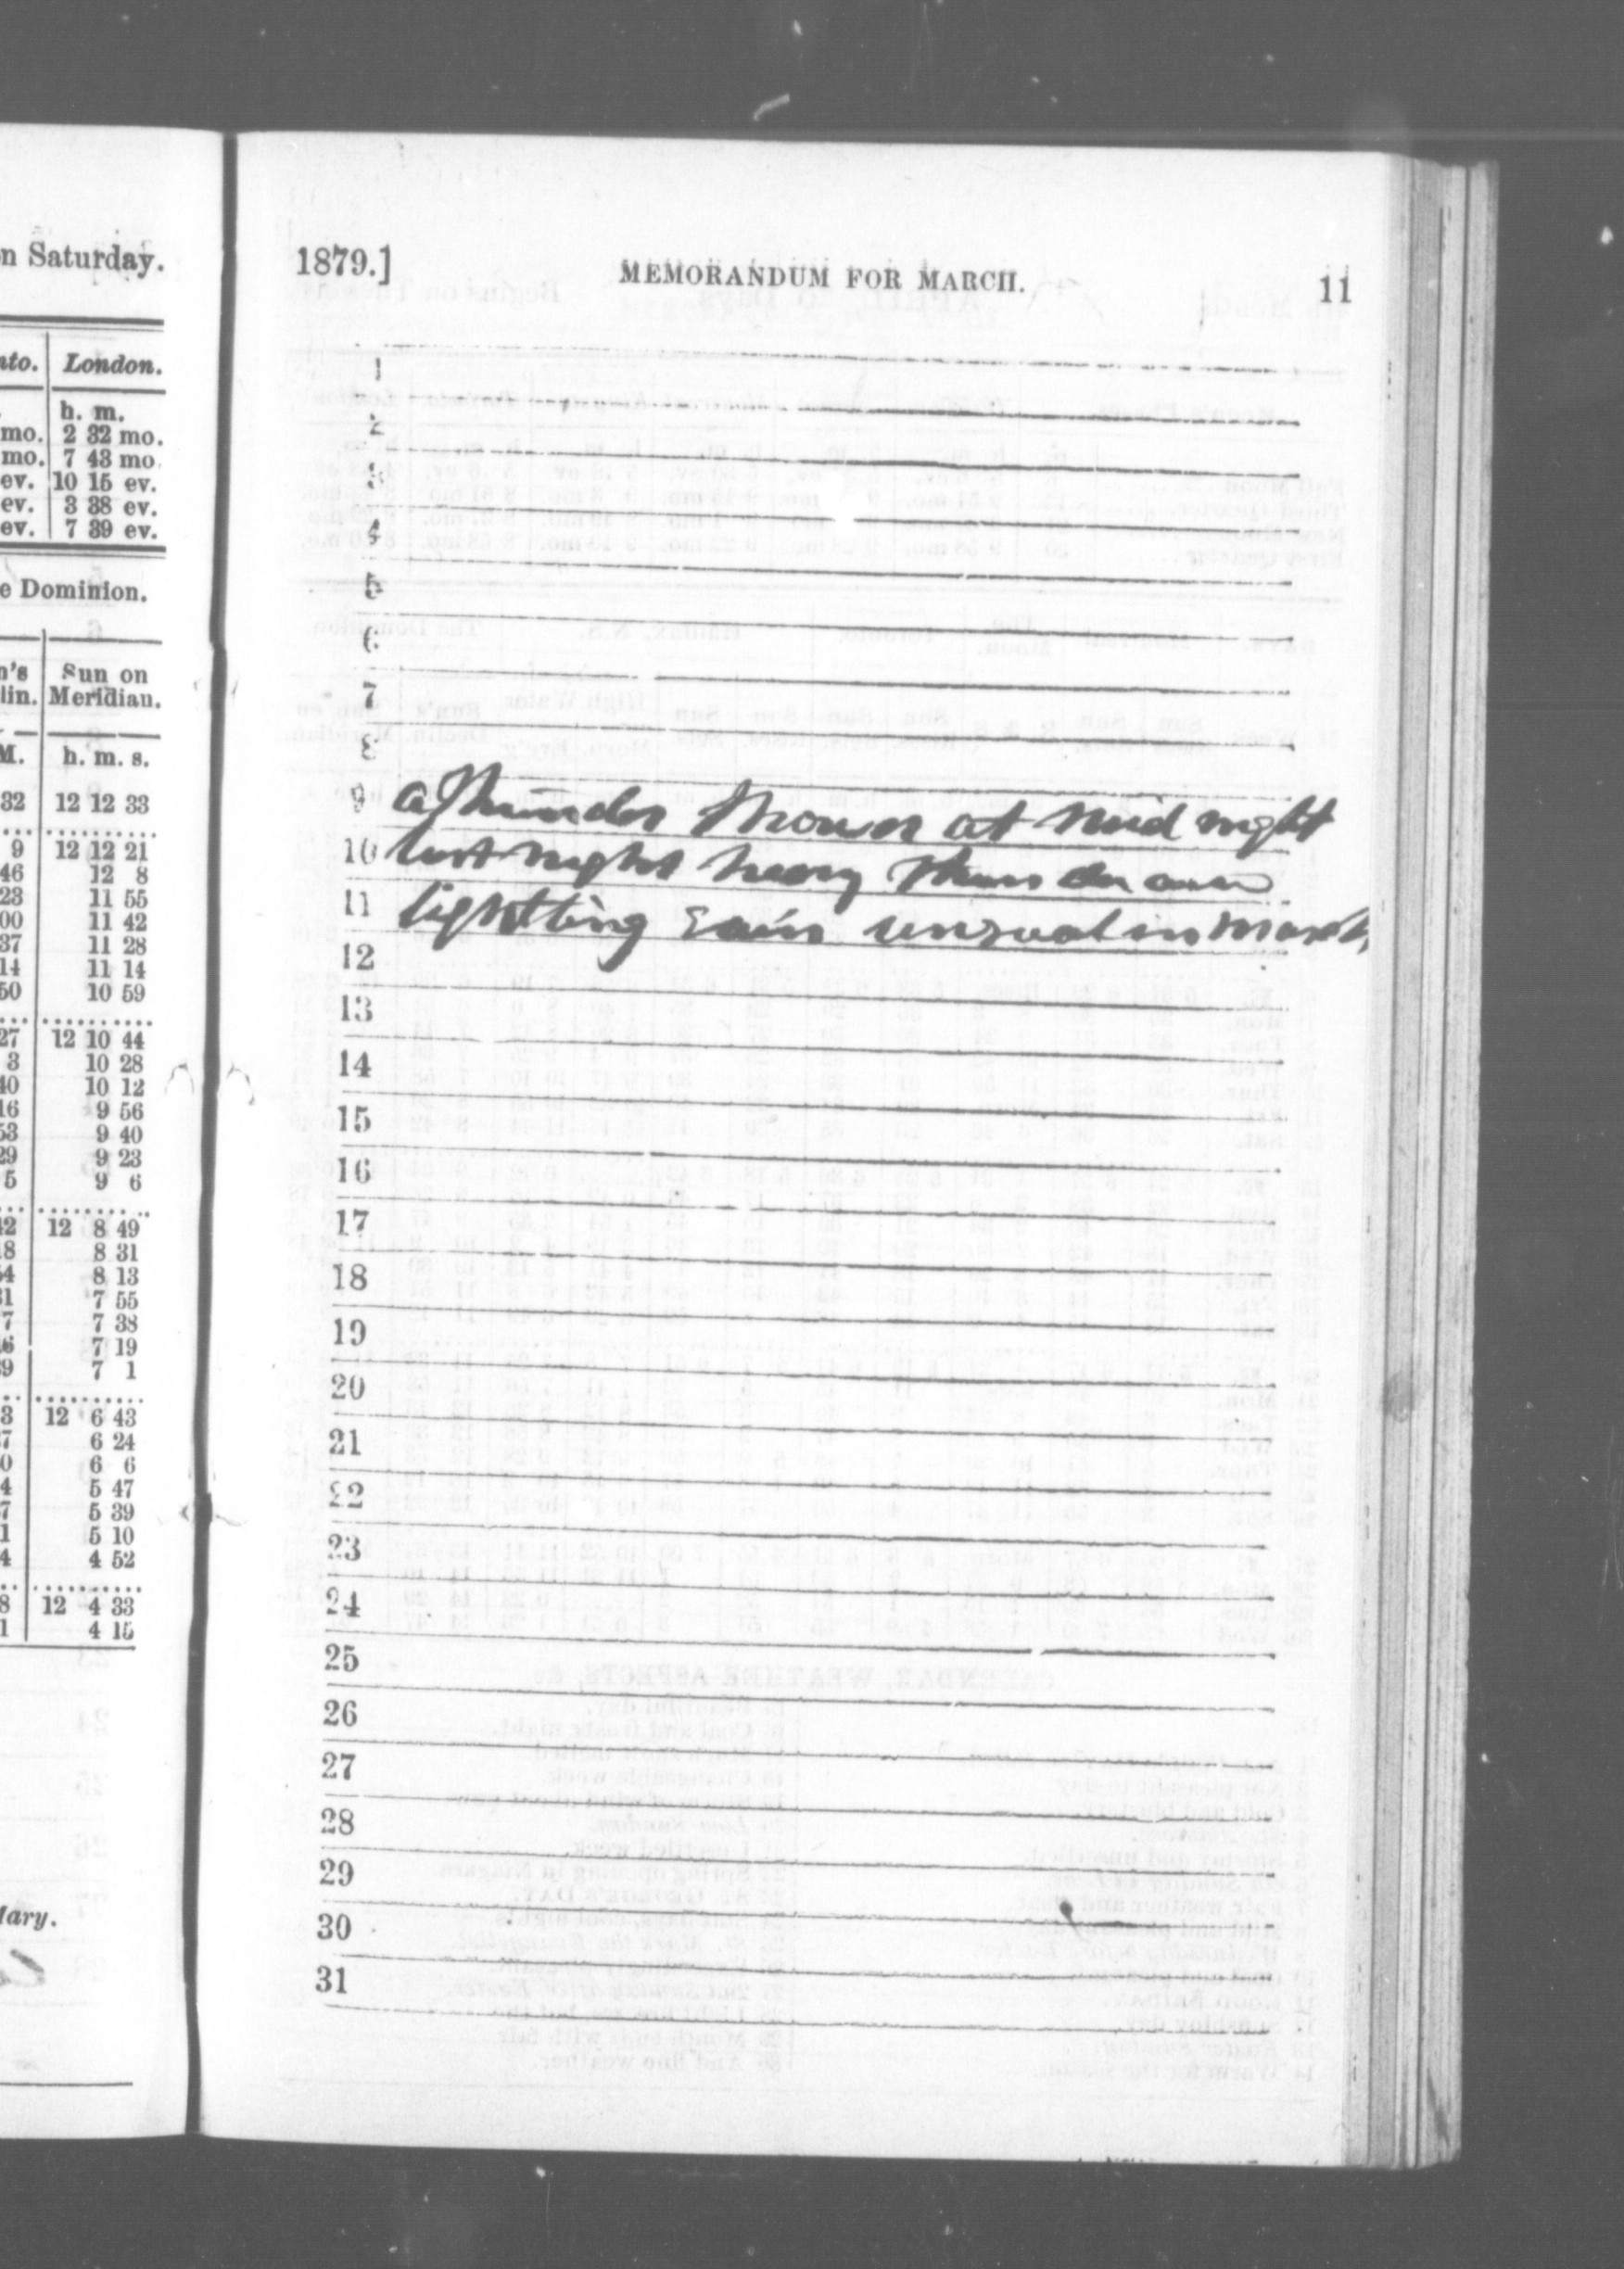 n Saturday.
nto. London.
h. m.
mo. 2 32 mo.
mo. 7 43 mo
ev. 10 15 ev.
ev. 3 38 ev.
ev. 7 39 ev.
e Dominion.
n's Sun on
lin. Meridian.
M. h. m. s.
32 12 12 33
9 12 12 21
46 12 8
23 11 55
00 11 42
37 11 28
14 11 14
50 10 59
27 12 10 44
3 10 28
40 10 12
16 9 56
53 9 40
29 9 23
5 9 6
42 12 8 49
18 8 31
54 8 13
31 7 55
7 7 38
46 7 19
39 7 1
3 12 6 43
37 6 24
0 6 6
4 5 47
37 5 39
1 5 10
4 4 52
8 12 4 33
1 4 15
Mary.
1879.] MEMORANDUM FOR MARCH. 11
1
2
3
4
5
6
7
8
9 a Thunder Shower at Mid night
10 last night heavy Thunder and
11 lightting rain unusual in March
12
13
14
15
16
17
18
19
20
21
22
23
24
25
26
27
28
29
30
31